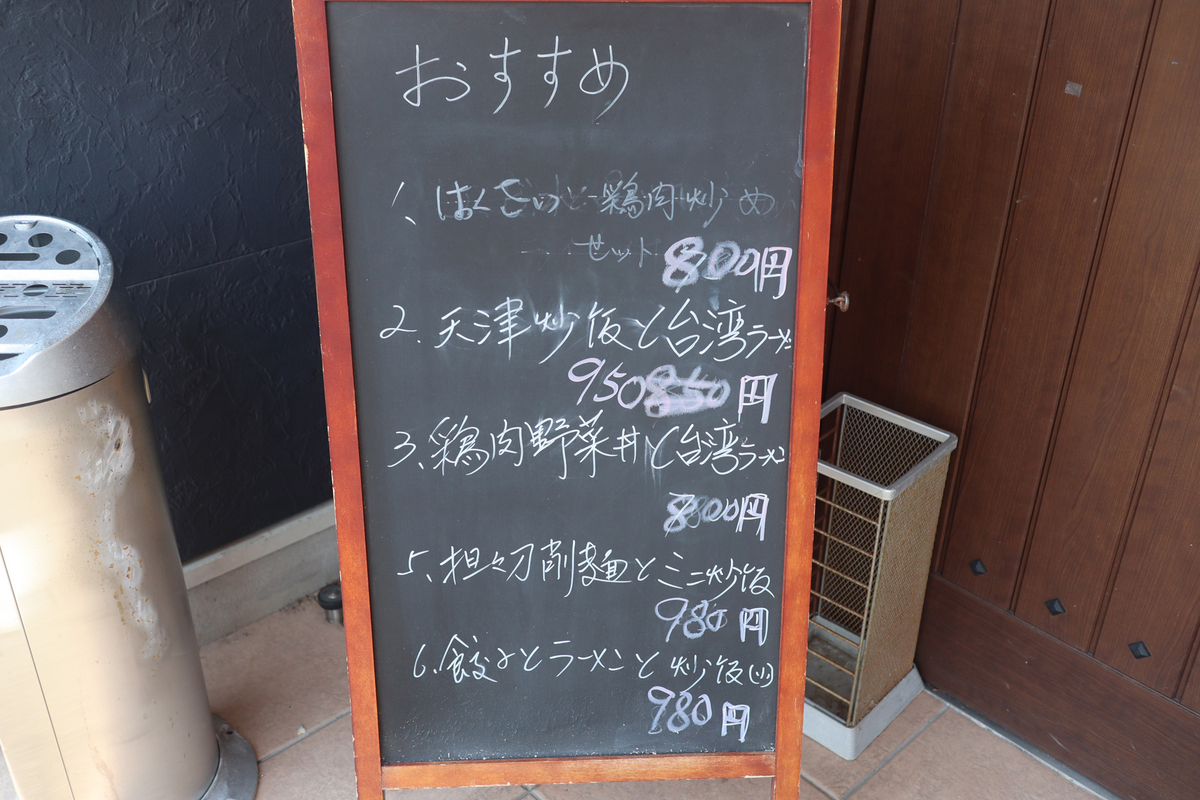 おすすめ
1、はくさいと鶏肉炒め
セット 800円
2.天津炒飯と台湾ラーメン
950 円
3、鶏肉野菜丼と台湾ラーメン
800円
5、担々刀削麺とミニ炒飯
980円
6.餃子とラーメンと炒飯(小)
980円